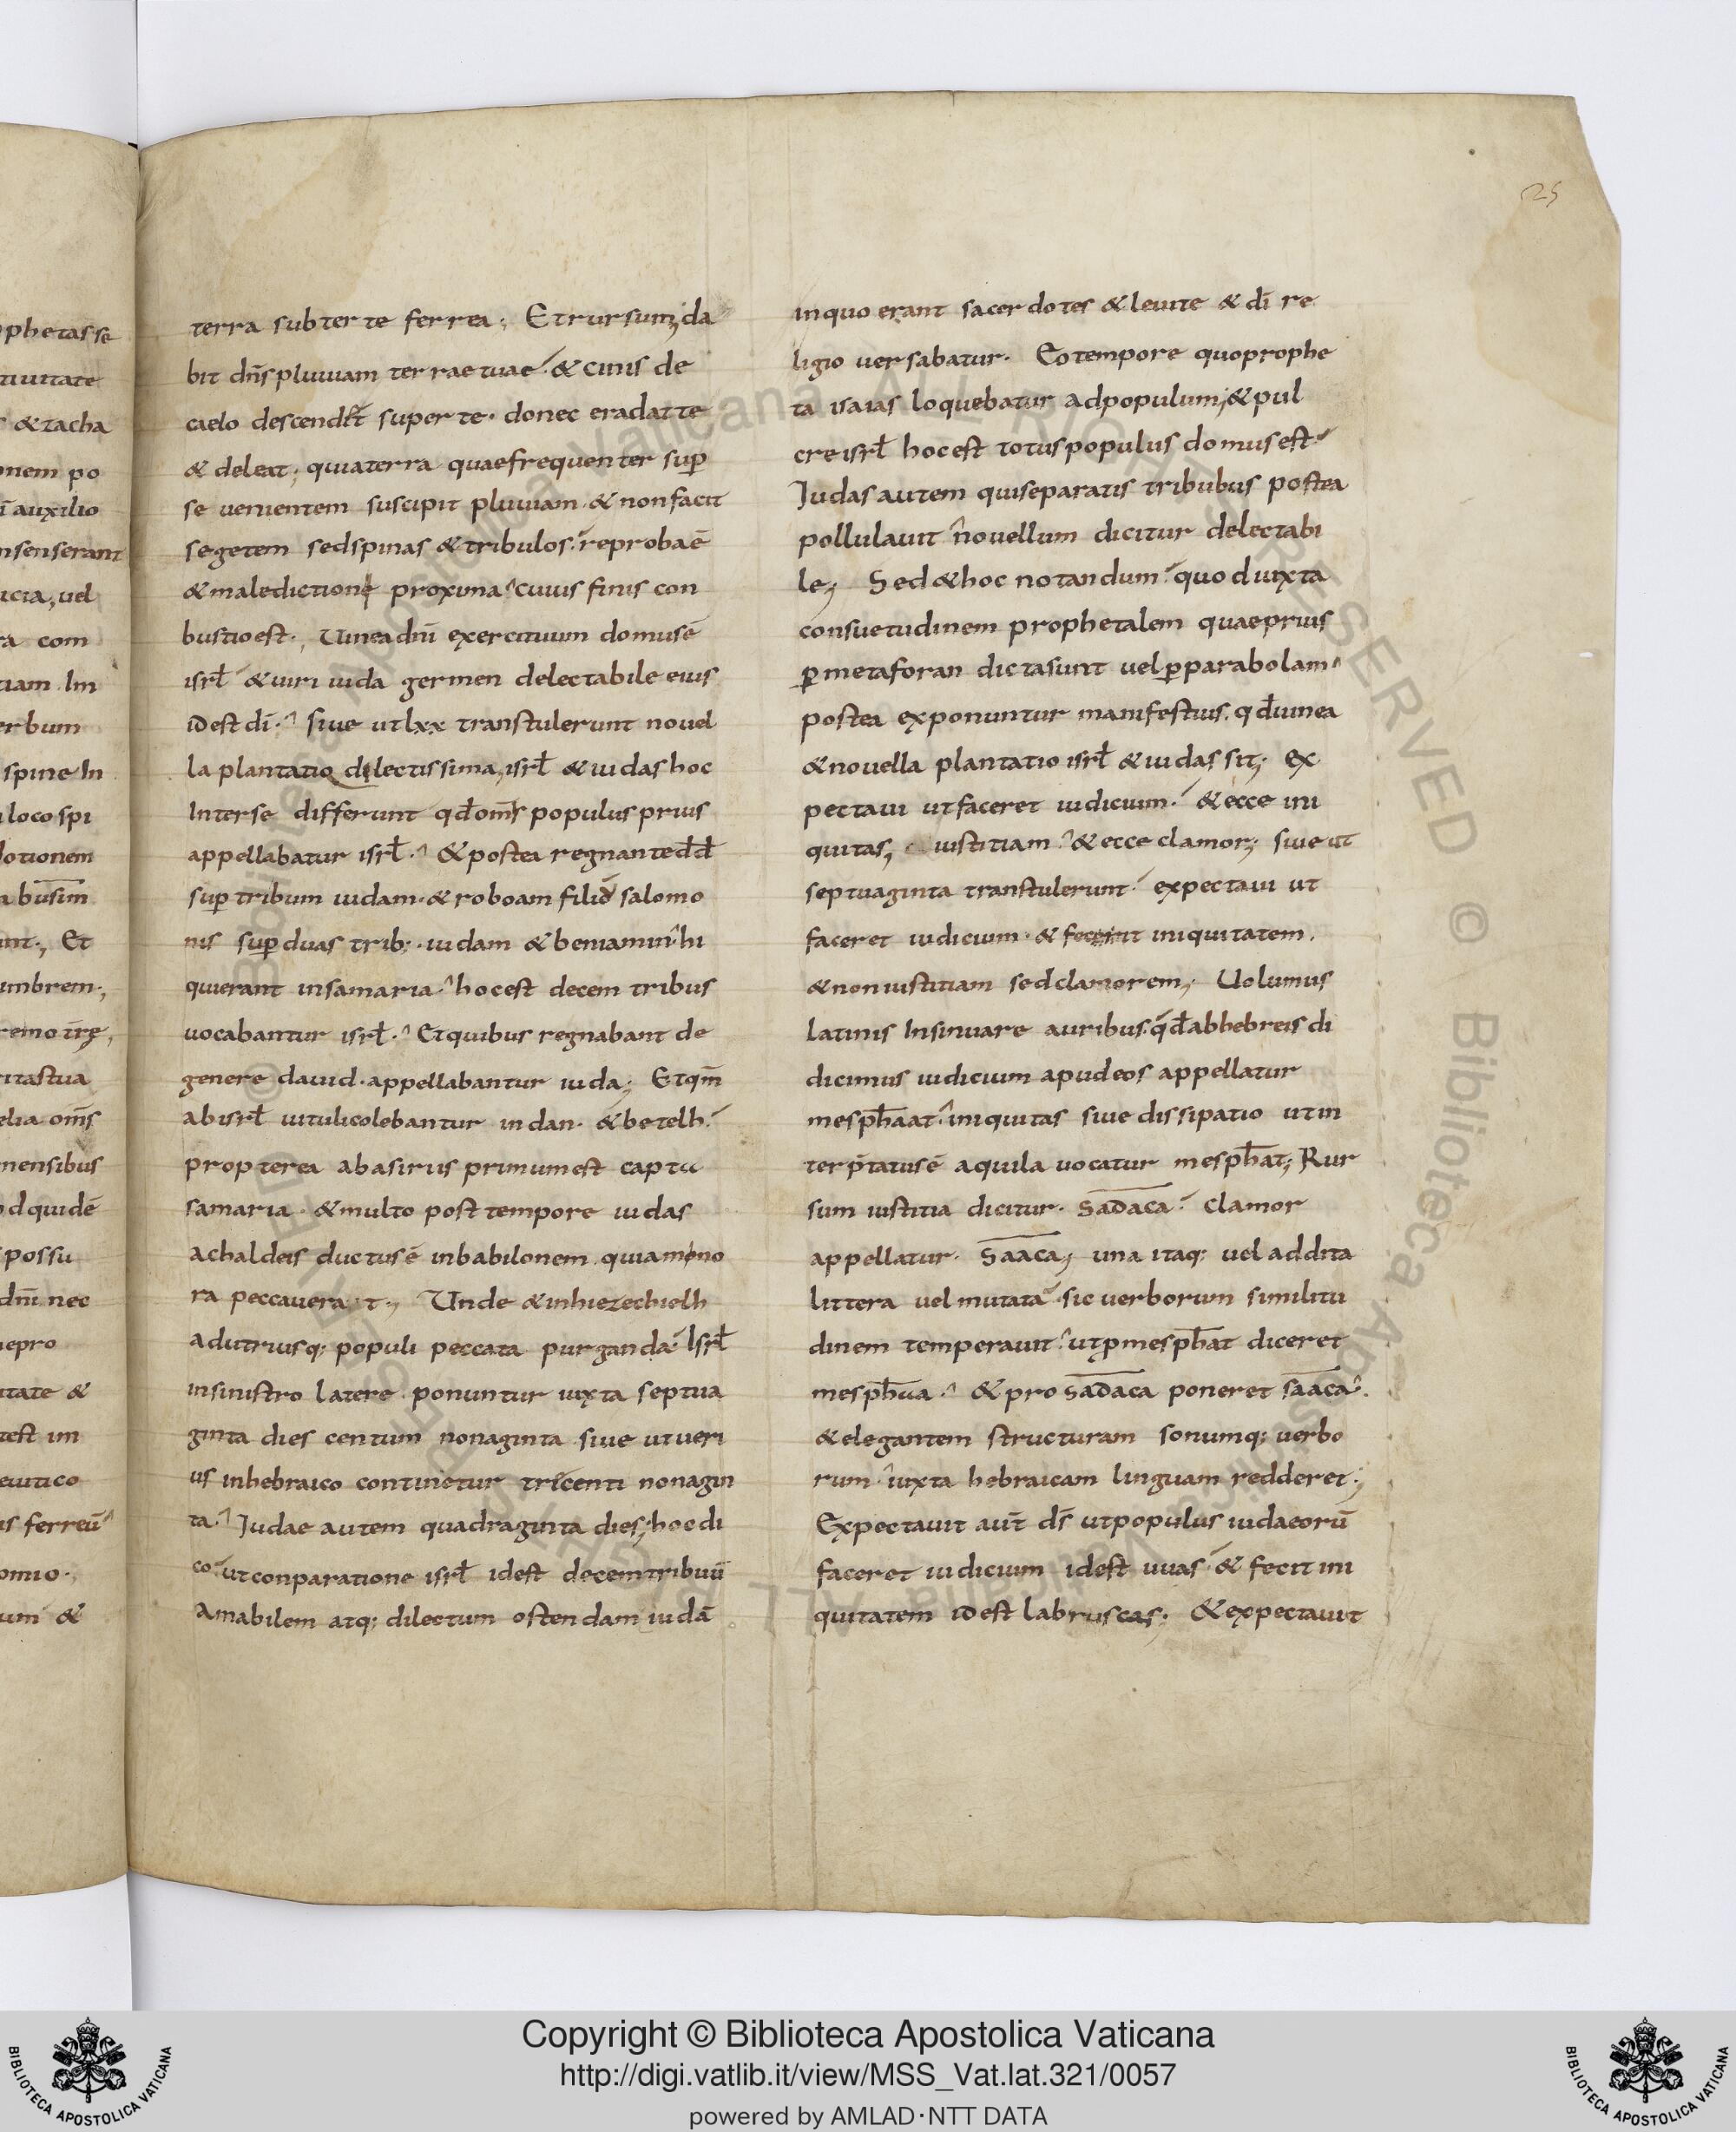 25
terra subter te ferrea; Et rursum; da
bit dn̄s pluuiam terrae tuae & cinis de
caelo descendet super te. donec eradat te
& deleat; quia terra quae frequenter sup̄
se uenientem suscipit pluuiam & non facit
segetem sed spinas & tribulos. reproba ē
& maledictione proxima cuius finis con
bustio est. Uinea dn̄i exercituum domus ē
isrł & uiri iuda germen delectabile eius
id est dī. siue ut lxx transtulerunt nouel
la plantatio dilectissima, isrł & iudas hoc
Inter se differunt qđ om̄s populus prius
appellabatur isrł. & postea regnante dđ
sup̄ tribum iudam. & roboam filio salomo
nis sup̄ duas trib; iudam & beniamin hi
qui erant in samaria hoc est decem tribus
uocabantur isrł. Et quibus regnabant de
genere dauid. appellabantur iuda; Et qm̄
ab isrł uituli colebantur in dan. & betelh.
propterea ab asiriis primum est capta
samaria. & multo post tempore iudas
a chaldeis ductus ē in babilonem. quia mino
ra peccauerat; Unde & in hiezechielh
ad utriusq; populi peccata purganda Isrł
in sinistro latere ponuntur iuxta septua
ginta dies centum nonaginta siue ut ueri
us in hebraico continetur tricenti nonagin
ta. Judae autem quadraginta dies; hoc di
co ut conparatione isrł id est decem tribuū
Amabilem atq; dilectum ostendam iudā
in quo erant sacerdotes & leuite & dī re
ligio uersabatur. Eo tempore quo prophe
ta isaias loquebatur ad populum; & pul
cre isrł hoc est totus populus domus est
Judas autem qui separatis tribubus postea
pollulauit nouellum dicitur delectabi
le; Sed & hoc notandum quod iuxta
consuetudinem prophetalem quae prius
p̄ metaforan dicta sunt uel p̄ parabolam
postea exponuntur manifestius. qđ uinea
& nouella plantatio isrł & iudas sit; ex
pectaui ut faceret iudicium. & ecce ini
quitas, iustitiam & ecce clamor; siue ut
septuaginta transtulerunt expectaui ut
faceret iudicium. & fecit iniquitatem.
& non iustitiam sed clamorem; Uolumus
latinis Insinuare auribus qđ ab hebreis di
dicimus iudicium apud eos appellatur
mesphaat. iniquitas siue dissipatio ut in
terp̄tatus ē aquila uocatur mesphat; Rur
sum iustitia dicitur. sadaca clamor
appellatur. Saaca; una itaq; uel addita
littera uel mutata sic uerborum similitu
dinem temperauit ut p̄ mesphat diceret
mesphaa. & pro sadaca poneret saaca.
& elegantem structuram sonumq; uerbo
rum iuxta hebraicam linguam redderet;
Expectauit aut̄ ds̄ ut populus iudaeorū
faceret iudicium id est uuas & fecit ini
quitatem id est labruscas; & expectauit
Copyright © Biblioteca Apostolica Vaticana
http://digi.vatlib.it/view/MSS_Vat.lat.321/0057
powered by AMLAD·NTT DATA
BIBLIOTECA APOSTOLICA VATICANA
BIBLIOTECA APOSTOLICA VATICANA